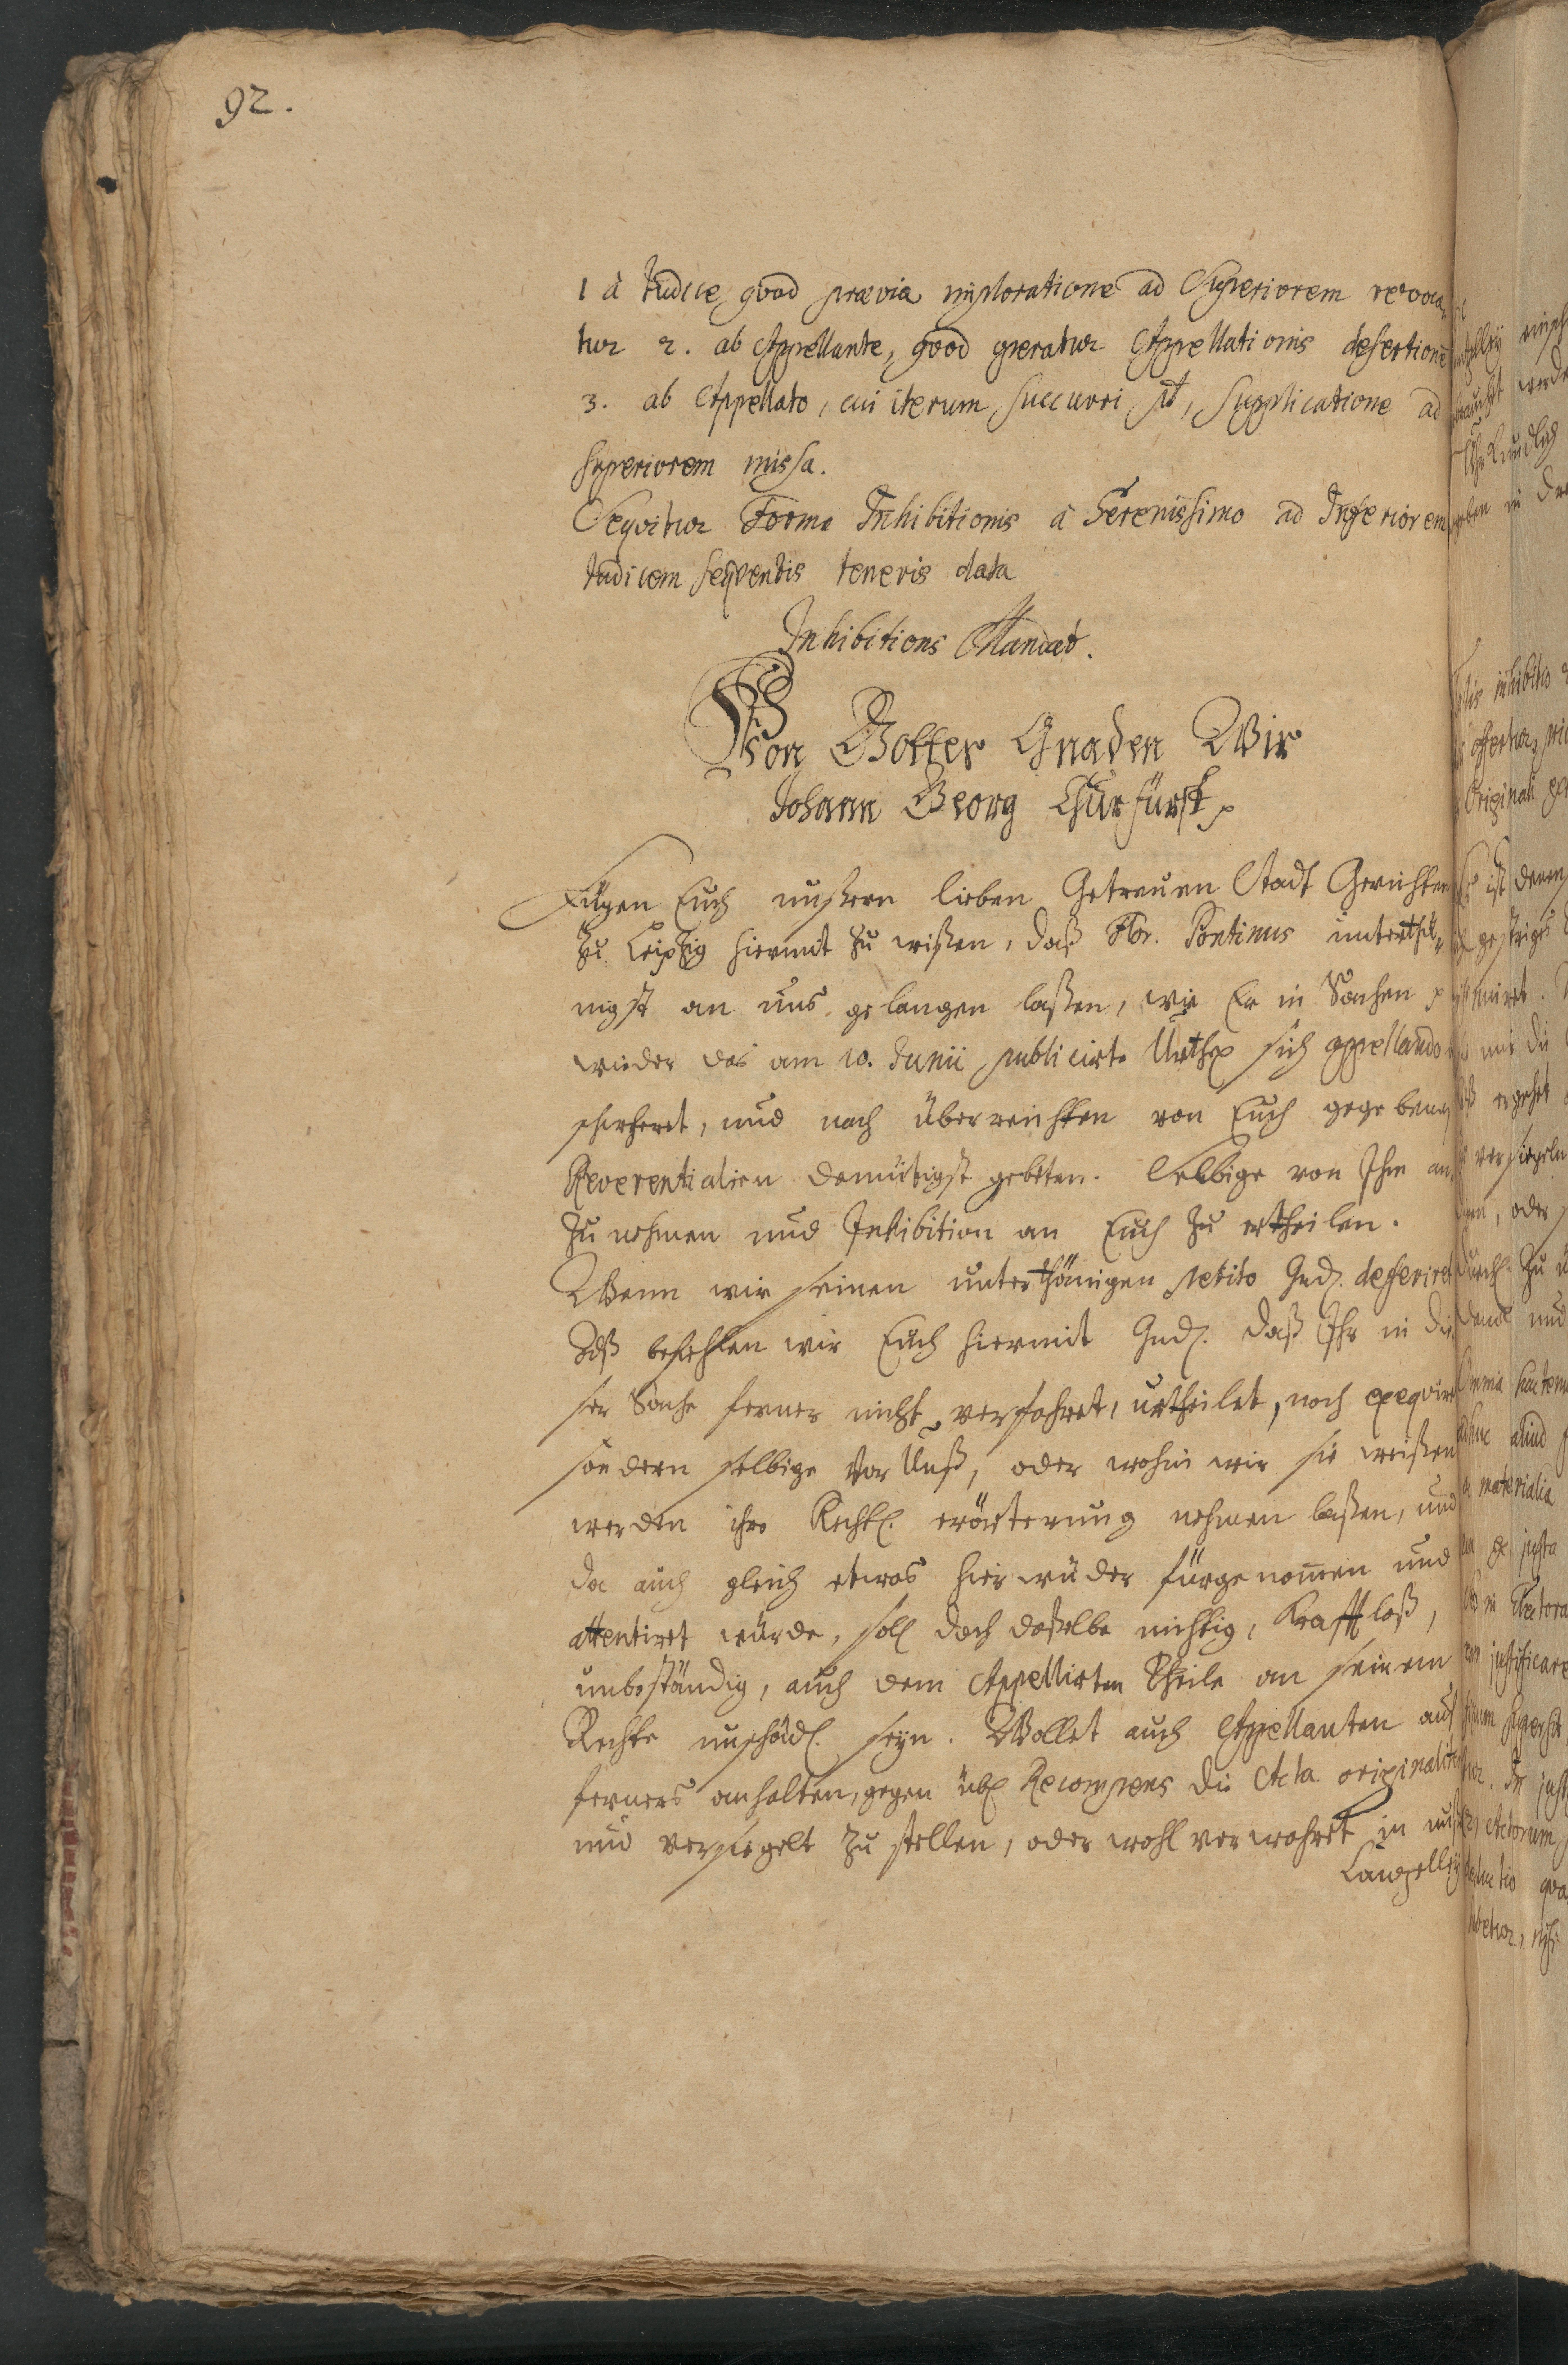 92.
1 à Judice qvod prævia imploratione ad Superiorem revoca-
tur 2. ab Appellante, qvod operatur Appellationis desertionē
3. ab Appellato, cui iterum succurri pt, supplicatione ad
superiorem missa.
Seqvitur Forma Inhibitionis à Serenissimo ad Inferiorem
Judicem seqventis teneris data
Inhibitions Mandat.
Von Gottes Gnaden Wir
Johann Georg Churfürst
Fügen Euch unßern lieben Getreuen Stadt Gerichten
zu Leipzig hiermit zu wißen, daß Flor. Pontinus unterthä-
nigst an uns gelangen laßen, wie Er in Sachen p
wieder das am 10. Junii publicirte Urthel sich appellando
und nach überreichten von Euch gegebenen
Reverentialien demütigst gebeten. Selbige von Ihm an
zu nehmen und Inhibition an Euch zu ertheilen.
Wann wir seinen unterthänigen petito Gnd. deferiret
Alß befehlen wir Euch hiermit Gnd. daß Ihr in die
ser Sache ferner nicht verfahret, urtheilet, noch exeqviret
sondern selbige vor Unß, oder wohin wir sie weißen
werden ihre Rechtl. erörterung nehmen laßen, und
da auch gleich etwas hierwieder fürgenom̄en und
attentiret würde, soll doch daßelbe nichtig, Krafftloß,
unbeständig, auch dem Appellirten Theile an seinem
Rechte unschädl. seyn. Wollet auch Appellanten auf
ferners anhalten, gegen übl. Recompens die Acta originaliter
und versiegelt zu stellen, oder wohl verwahret in unsre
Cantzelley